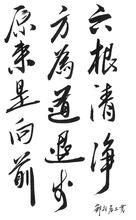 六根清净
方為道退步
原来是向前